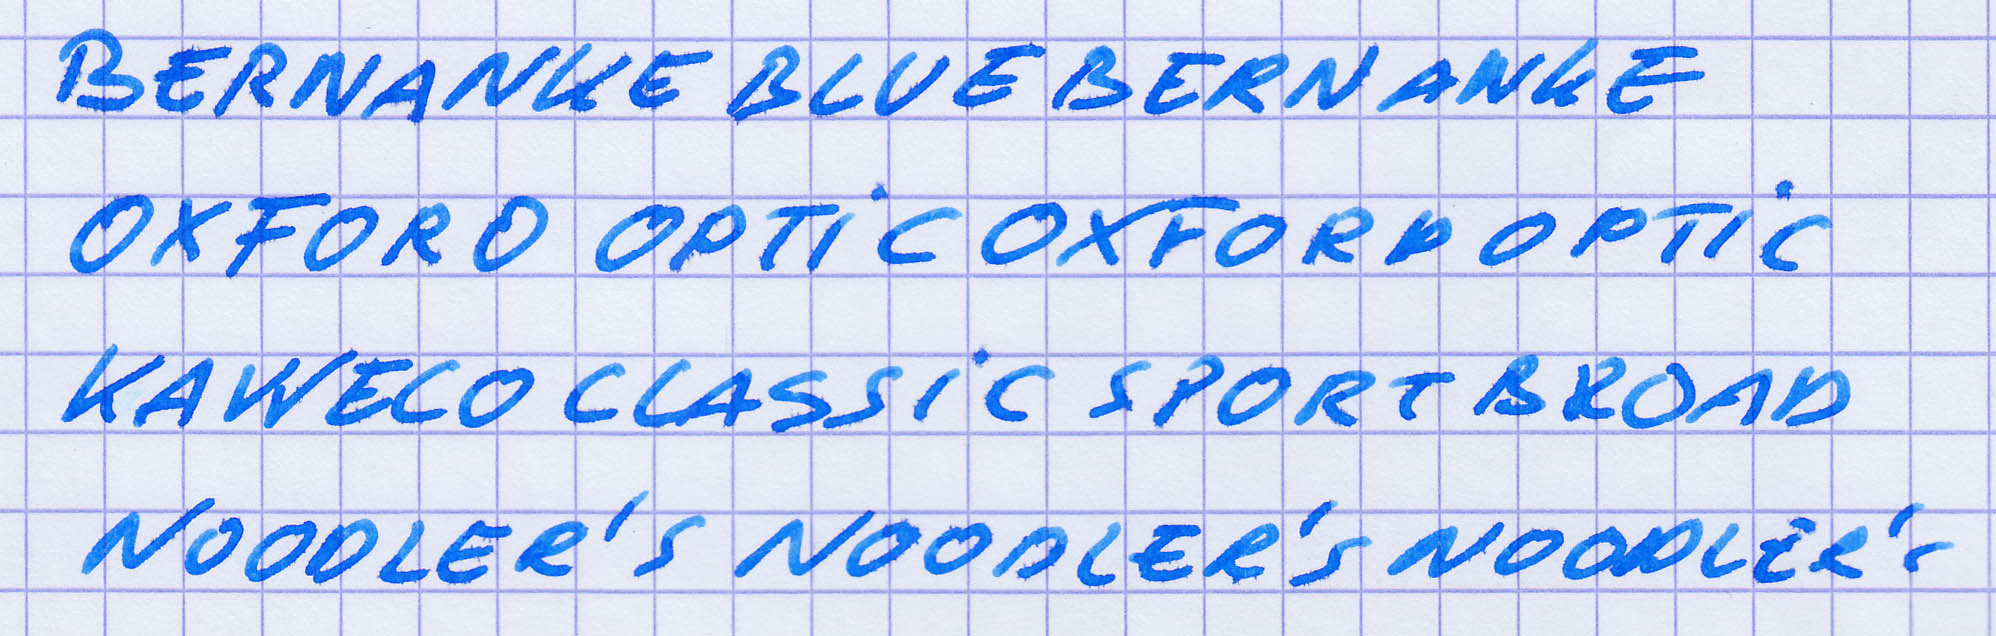 BERNANKE BLUE BERNANKE
OXFORD OPTiC OXFORD OPTiC
KAWECO CLASSiC SPORT BROAD
NOODLER'S NOODLER'S NOODLER'S